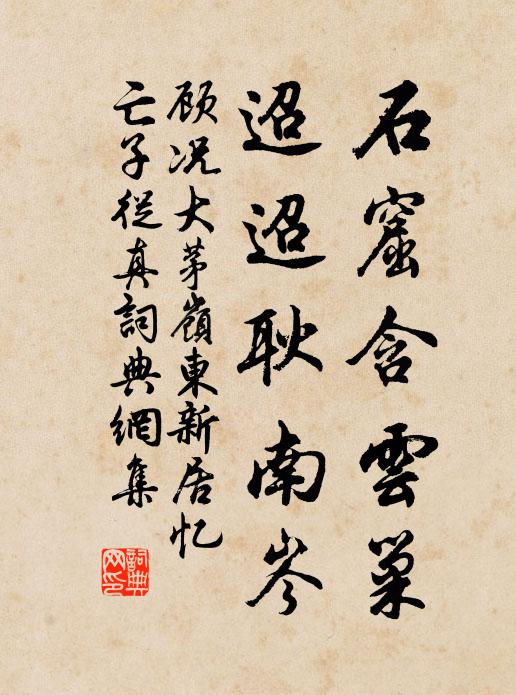 石窟含雲巢
迢迢耿南岑
顾况大茅嶺東新居忆
亡子從真詞典網集
詞典网印